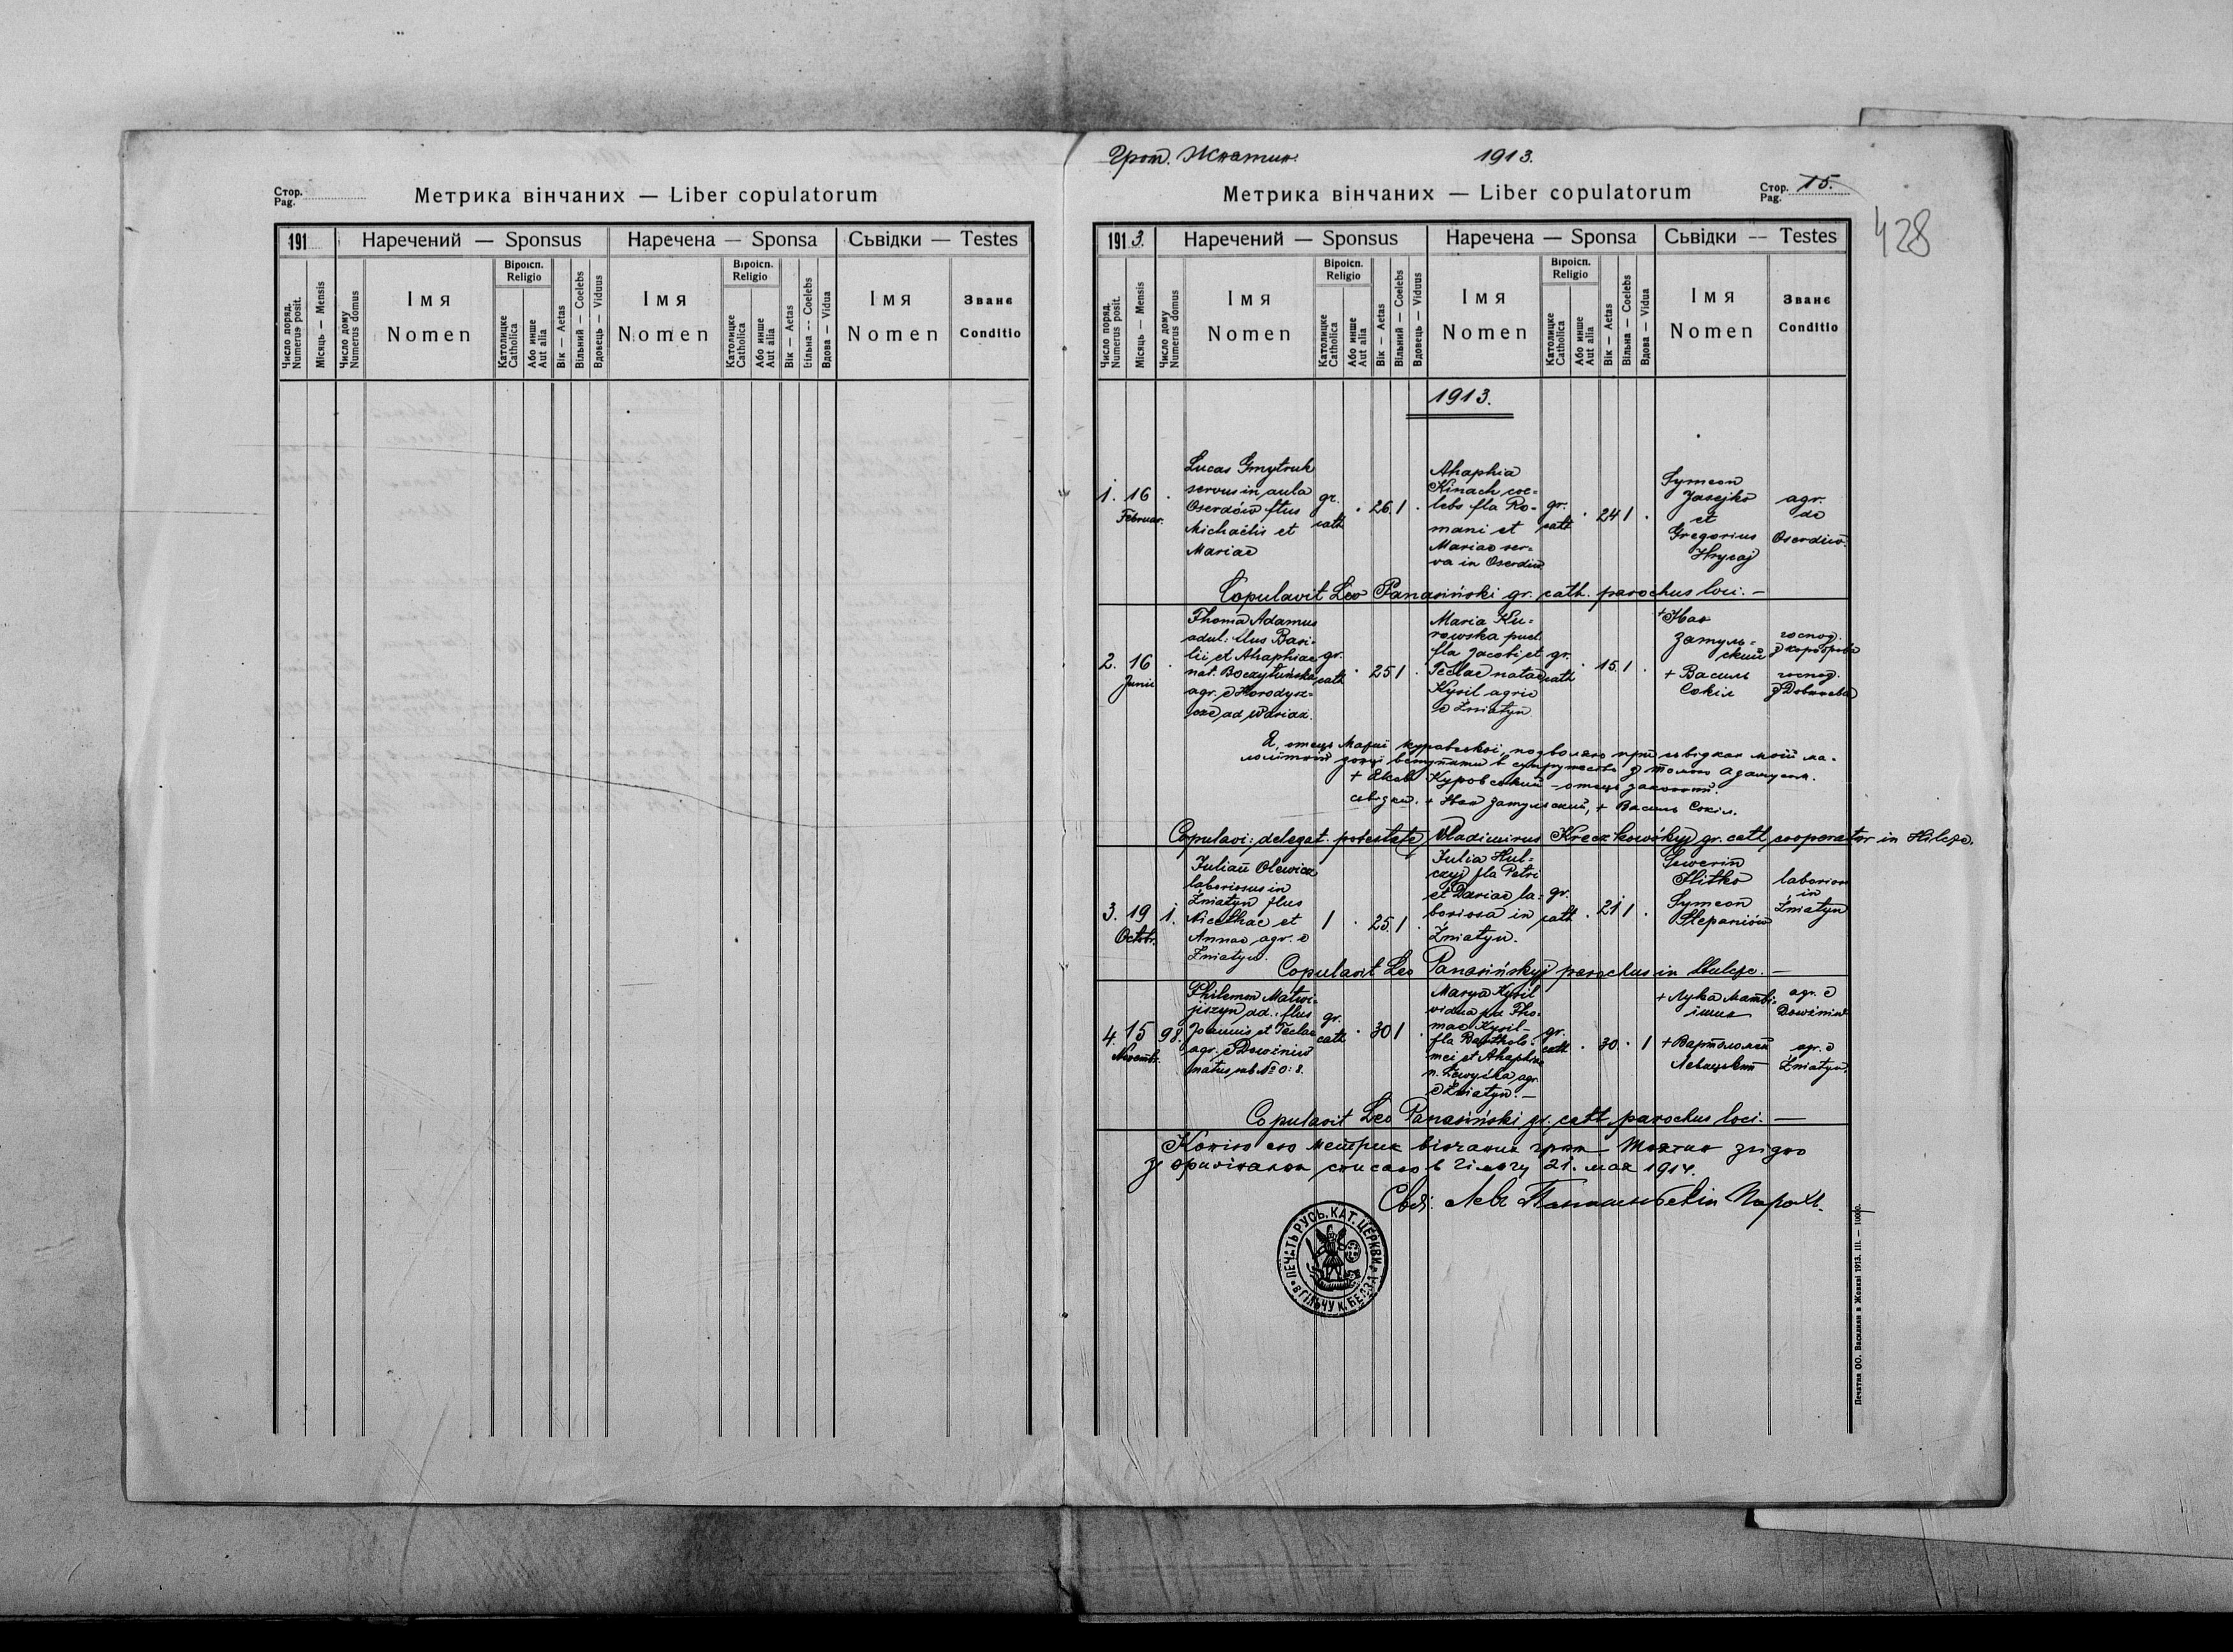 Стор.
Pag.
Метрика вінчаних — Liber copulatorum
191
Наречений — Sponsus
Наречена — Sponsa
Сьвідки — Testes
Число поряд.
Numerus posit.
Місяць — Mensis
Число дому
Numerus domus
Імя
Nomen
Віроісп.
Religio
Католицке
Catholica
Або инше
Aut alia
Вік — Aetas
Вільний — Coelebs
Вдовець — Viduus
Імя
Nomen
Віроісп.
Religio
Католицке
Catholica
Або инше
Aut alia
Вік — Aetas
Вільна — Coelebs
Вдова — Vidua
Імя
Nomen
Званє
Conditio
Гром. Жнятин.
1913.
Метрика вінчаних — Liber copulatorum
Стор.
Pag.
15.
428
1913.
Наречений — Sponsus
Наречена — Sponsa
Сьвідки — Testes
Число поряд.
Numerus posit.
Місяць — Mensis
Число дому
Numerus domus
Імя
Nomen
Віроісп.
Religio
Католицке
Catholica
Або инше
Aut alia
Вік — Aetas
Вільний — Coelebs
Вдовець — Viduus
Імя
Nomen
Віроісп.
Religio
Католицке
Catholica
Або инше
Aut alia
Вік — Aetas
Вільна — Coelebs
Вдова — Vidua
Імя
Nomen
Званє
Conditio
1913.
1. 16
Februar.
Lucas Gmytruk
servus in aula
Oserdów flus
Michaëlis et
Mariae
gr.
cath
26 1
Ahaphia
Kinach coe-
lebs fla Ro-
mani et
Mariae ser-
va in Oserdiw
gr.
cath
24 1
Symeon
Jasejko
et
Gregorius
Hrycaj
agr.
de
Oserdiw.
Copulavit Leo Panasiński gr. cath. parochus loci. -
2. 16
Junii
Thoma Adamus
adul: flus Basi-
lii et Ahaphiae
nat.
agr. e Horodysz-
cze ad Wariaz.
gr.
cath
25 1
Maria Ku-
rowska puel.
fla Jacobi et
Teclae natae
Kysil agric
e Żniatyn
gr.
cath
15. 1
+ Іван
Затуль-
ский
+ Василь
Сокіл
господ.
господ.
Я, отець Марії Куровскої, позволяю при сьвідках моїй ма-
лолїтній вступити в супружество з Томою Адамусом.
+ Яков Куровский - отець
сьвідки. + Іван Затульский, + Василь Сокіл.
Copulavi: delegat. potestate Vladimirus gr. cath cooperator in Hilcze.
3. 19 1.
Octobr.
Julian Olewicz
laboriosus in
Żniatyn flus
Nicethae et
Annae agr. e
Żniatyn.
1
25. 1
Julia Hul-
czyj fla Petri
et Dariae la-
boriosa in
Żniatyn.
gr.
cath
21 1
Sewerin
Hitko
Symeon
Stepaniów
laborios
in
Żniatyn
Copulavit Leo Panasińskyj parochus in Hulcze. -
4. 15 98.
Novemb.
Philemon Matwi-
jiszyn ad.: flus
Joannis et Teclae
agr. e Dowżniw
natus sub № D: 8.
gr.
cath
30 1
Marya Kysil
vidua p. Tho-
mae Kysil -
fla Bartholo-
mei et Ahaphiae
agr.
e Żniatyn. -
gr.
cath
30. 1
+ Лука Матві-
їшин
+ Вартоломей
Левицький
agr. e
Dowżniw
agr. e
Żniatyn.
Copulavit Leo Panasiński gr. cath. parochus loci. -
Копію сю метрик вінчаних гром. Жнятин згідно
з оригіналом списано в Гільчу 21. мая 1914.
Свящ: Левъ Парохъ.
ПЕЧАТЬ РУСЬ. КАТ. ЦЕРКВИ
В ГІЛЬЧУ К. БЕЛЗА
Печатня ОО. Василиан в Жовкві 1913. III. — 10000.